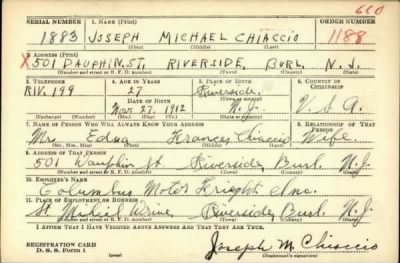 660
SERIAL NUMBER 1. NAME (Print) ORDER NUMBER
1883 JOSEPH MICHAEL CHIACCIO 1188
(First) (Middle) (Last)
2. ADDRESS (Print)
X 501 DAUPHIN. ST. RIVERSIDE, BURL. N.J.
(Number and street or R. F. D. number) (Town) (County) (State)
3. TELEPHONE 4. AGE IN YEARS 5. PLACE OF BIRTH 6. COUNTRY OF CITIZENSHIP
RIV. 199 27 Riverside
DATE OF BIRTH (Town or county)
Nov. 27, 1912 N. J. U. S. A.
(Exchange) (Number) (Mo.) (Day) (Yr.) (State or country)
7. NAME OF PERSON WHO WILL ALWAYS KNOW YOUR ADDRESS 8. RELATIONSHIP OF THAT PERSON
Mrs Edna Frances Chiaccio Wife
(Mr., Mrs., Miss) (First) (Middle) (Last)
9. ADDRESS OF THAT PERSON
501 Dauphin St Riverside Burl. N.J.
(Number and street or R. F. D. number) (Town) (County) (State)
10. EMPLOYER'S NAME
Columbus Motor Freight Inc.
11. PLACE OF EMPLOYMENT OR BUSINESS
St. Mihiel Drive Riverside, Burl. N. J.
(Number and street or R. F. D. number) (Town) (County) (State)
I AFFIRM THAT I HAVE VERIFIED ABOVE ANSWERS AND THAT THEY ARE TRUE.
REGISTRATION CARD
D. S. S. Form 1 (over) Joseph M Chiaccio
(Registrant's signature)